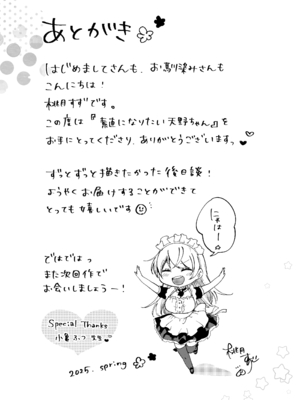 あとがき
はじめましてさんも、お馴染みさんも
こんにちは!
桃月すずです。
この度は『素直になりたい天野ちゃん』を
お手にとってくださり、ありがとうございますっ
ずっとずっと描きたかった後日談!
ようやくお届けすることができて
とっても嬉しいです
ではではっ
また次回作で
お会いしましょうー!
Special Thanks
2025. spring
桃月
すず